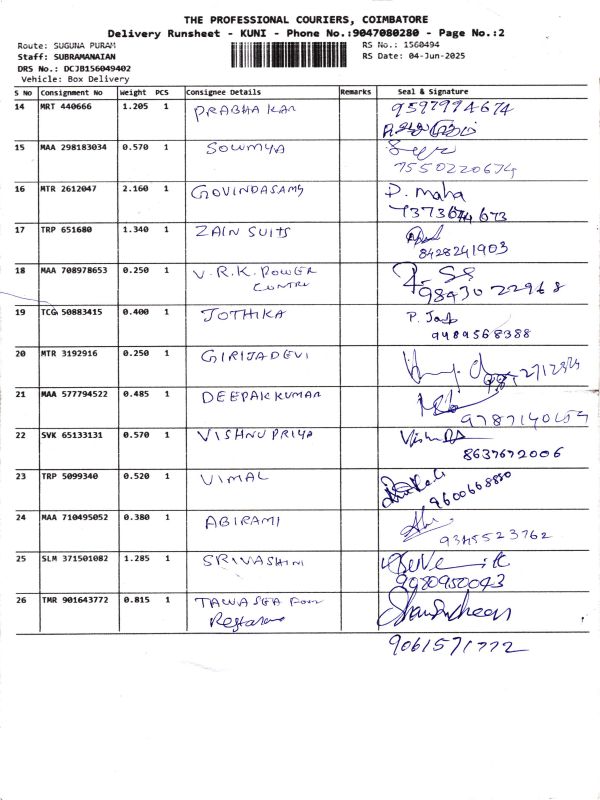 THE PROFESSIONAL COURIERS, COIMBATORE
Delivery Runsheet - KUNI - Phone No.:9047080280 - Page No.:2
Route: SUGUNA PURAM
RS No.: 1560494
Staff: SUBRAMANAIAN
RS Date: 04-Jun-2025
DRS No.: DCJB156049402
Vehicle: Box Delivery
S No Consignment No Weight PCS Consignee Details Remarks Seal & Signature
14 MRT 440666 1.205 1 PRABHAKAR 9597994674
15 MAA 298183034 0.570 1 SOWMYA
7550220674
16 MTR 2612047 2.160 1 GOVINDASAMY P. Maha
17 TRP 651680 1.340 1 ZAIN SUITS
8428241903
18 MAA 708978653 0.250 1 V.R.K. POWER
CENTRE 9843022968
19 TCG 50883415 0.400 1 JOTHIKA P.
9489568388
20 MTR 3192916 0.250 1 GIRIJADEVI
21 MAA 577794522 0.485 1 DEEPAKKUMAR
22 SVK 65133131 0.570 1 VISHNUPRIYA
8637672006
23 TRP 5099340 0.520 1 VIMAL
9600668850
24 MAA 710495052 0.380 1 ABIRAMI
9345523762
25 SLM 371501082 1.285 1 SRIVASHINI
9980950043
26 TMR 901643772 0.815 1
9061571772